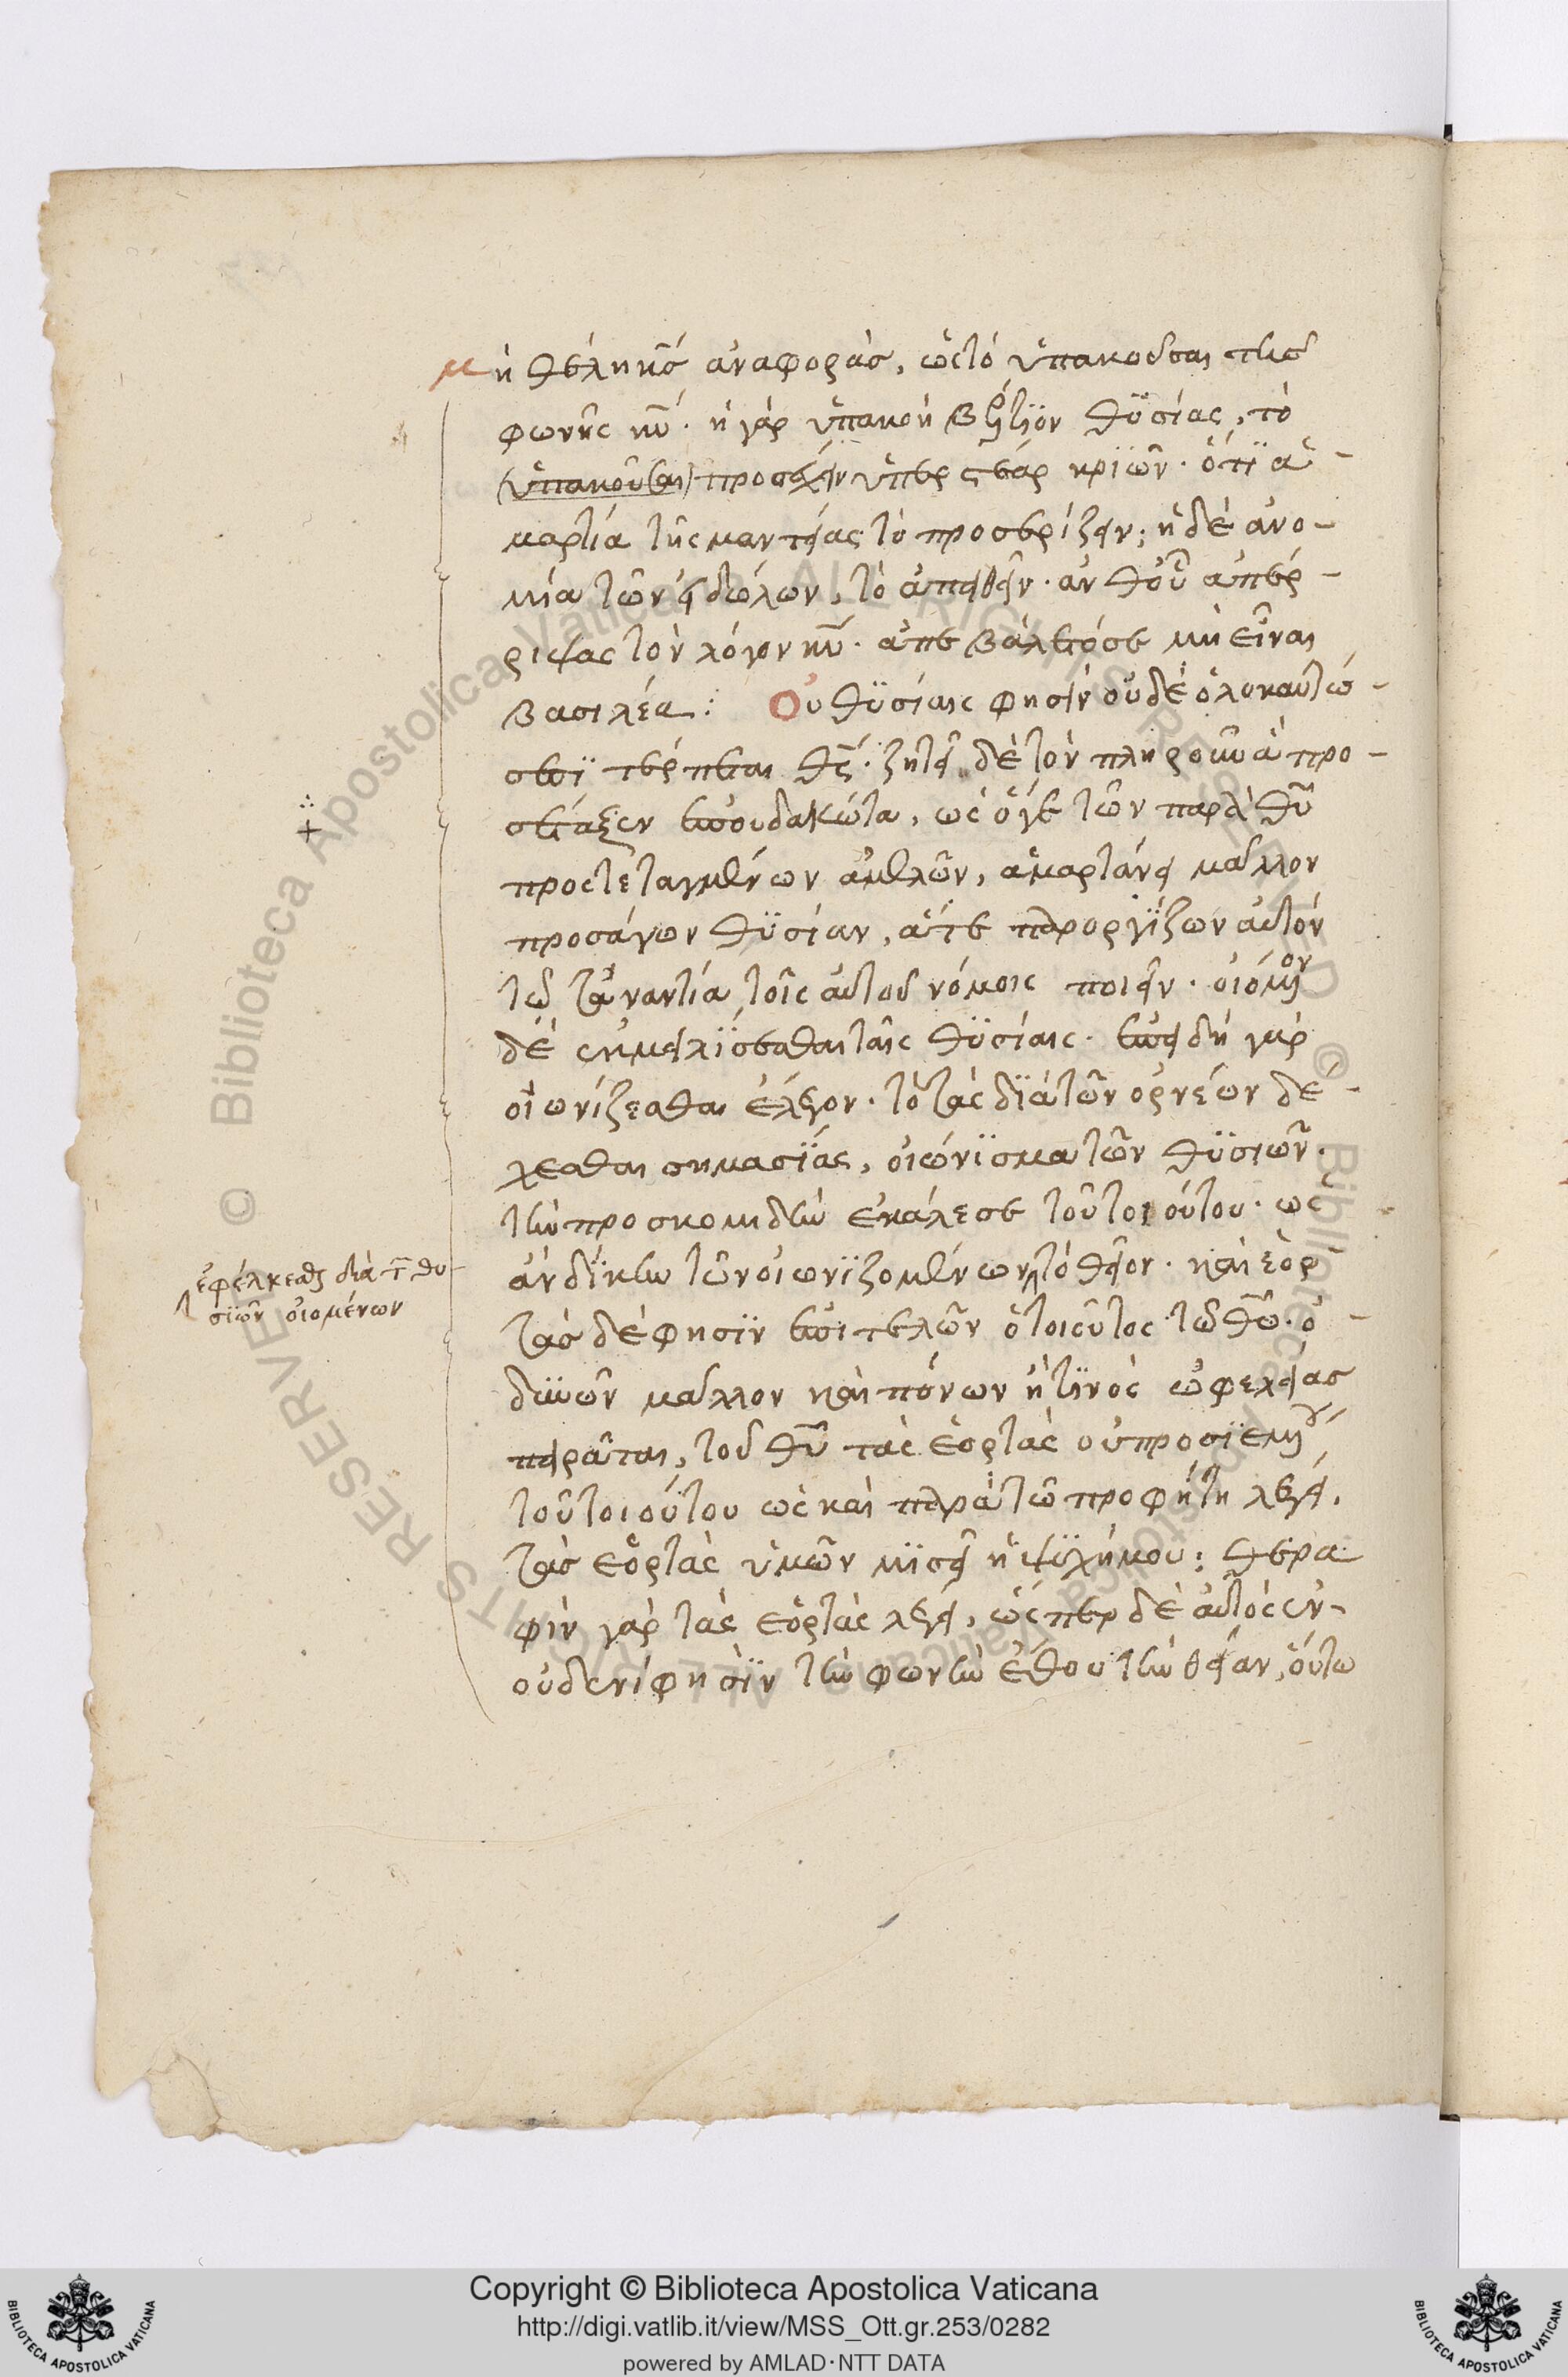 μὴ θέλει κς ἀναφοράς, ὡς τὸ ὑπακοῦσαι τῆς
φωνῆς κυ. ἡ γὰρ ὑπακοὴ βέλτιον θυσίας, τὸ
(ὑπακοῦσαι) προσέχειν ὑπὲρ στέαρ κριῶν. ὅτι ἁ-
μαρτία τῆς μαντείας τὸ προσερίζειν; ἡ δὲ ἀνο-
μία τῶν εἰδώλων, τὸ ἀπειθεῖν. ἀνθ' οὗ ἀπέρ-
ριψας τὸν λόγον κυ. ἀπεβάλετό σε μὴ εἶναι
βασιλέα: Οὐ θυσίαις φησὶν οὐδὲ ὁλοκαυτώ-
σεσι τέρπεται θς. ζητεῖ δὲ τὸν πληροῦν ἃ προ-
σέταξεν ἐσπουδακότα, ὡς ὅγε τῶν παρὰ θυ
προστεταγμένων ἀμελῶν, ἁμαρτάνει μᾶλλον
προσάγων θυσίαν, ἅτε παροργίζων αὐτὸν
τῷ τἀναντία τοῖς αὐτοῦ νόμοις ποιεῖν. οἰόμενον
δὲ ἐκμειλίσσεσθαι ταῖς θυσίαις. ἐπειδὴ γὰρ
οἰωνίζεσθαι ἔλεγον. τὸ τὰς διὰ τῶν ὀρνέων δέ-
χεσθαι σημασίας, οἰώνισμα τῶν θυσιῶν.
τὴν προσκομιδὴν ἐκάλεσε τοῦ τοιούτου. ὡς
ἂν δίκην τῶν οἰωνιζομένων τὸ θεῖον. καὶ ἑορ-
τὰς δέ φησιν ἐπιτελῶν ὁ τοιοῦτος τῷ θῶ. ὀ-
δυνῶν μᾶλλον καὶ πόνων ἤ τινος ὠφελείας
πειρᾶται, τοῦ θυ τὰς ἑορτὰς οὐ προσιεμένου
τοῦ τοιούτου ὡς καὶ παρὰ τῷ προφήτῃ λέγει.
τὰς ἑορτὰς ὑμῶν μισεῖ ἡ ψυχή μου: θερα-
φὶν γὰρ τὰς ἑορτὰς λέγει, ὥσπερ δὲ αὐτὸς ἐν
οὐδενί φησιν τὴν φωνὴν ἔθου τὴν θείαν, οὕτω
ἐφέλκεσθαι διὰ τ θυ-
σιῶν οἰομένων
Copyright © Biblioteca Apostolica Vaticana
http://digi.vatlib.it/view/MSS_Ott.gr.253/0282
powered by AMLAD·NTT DATA